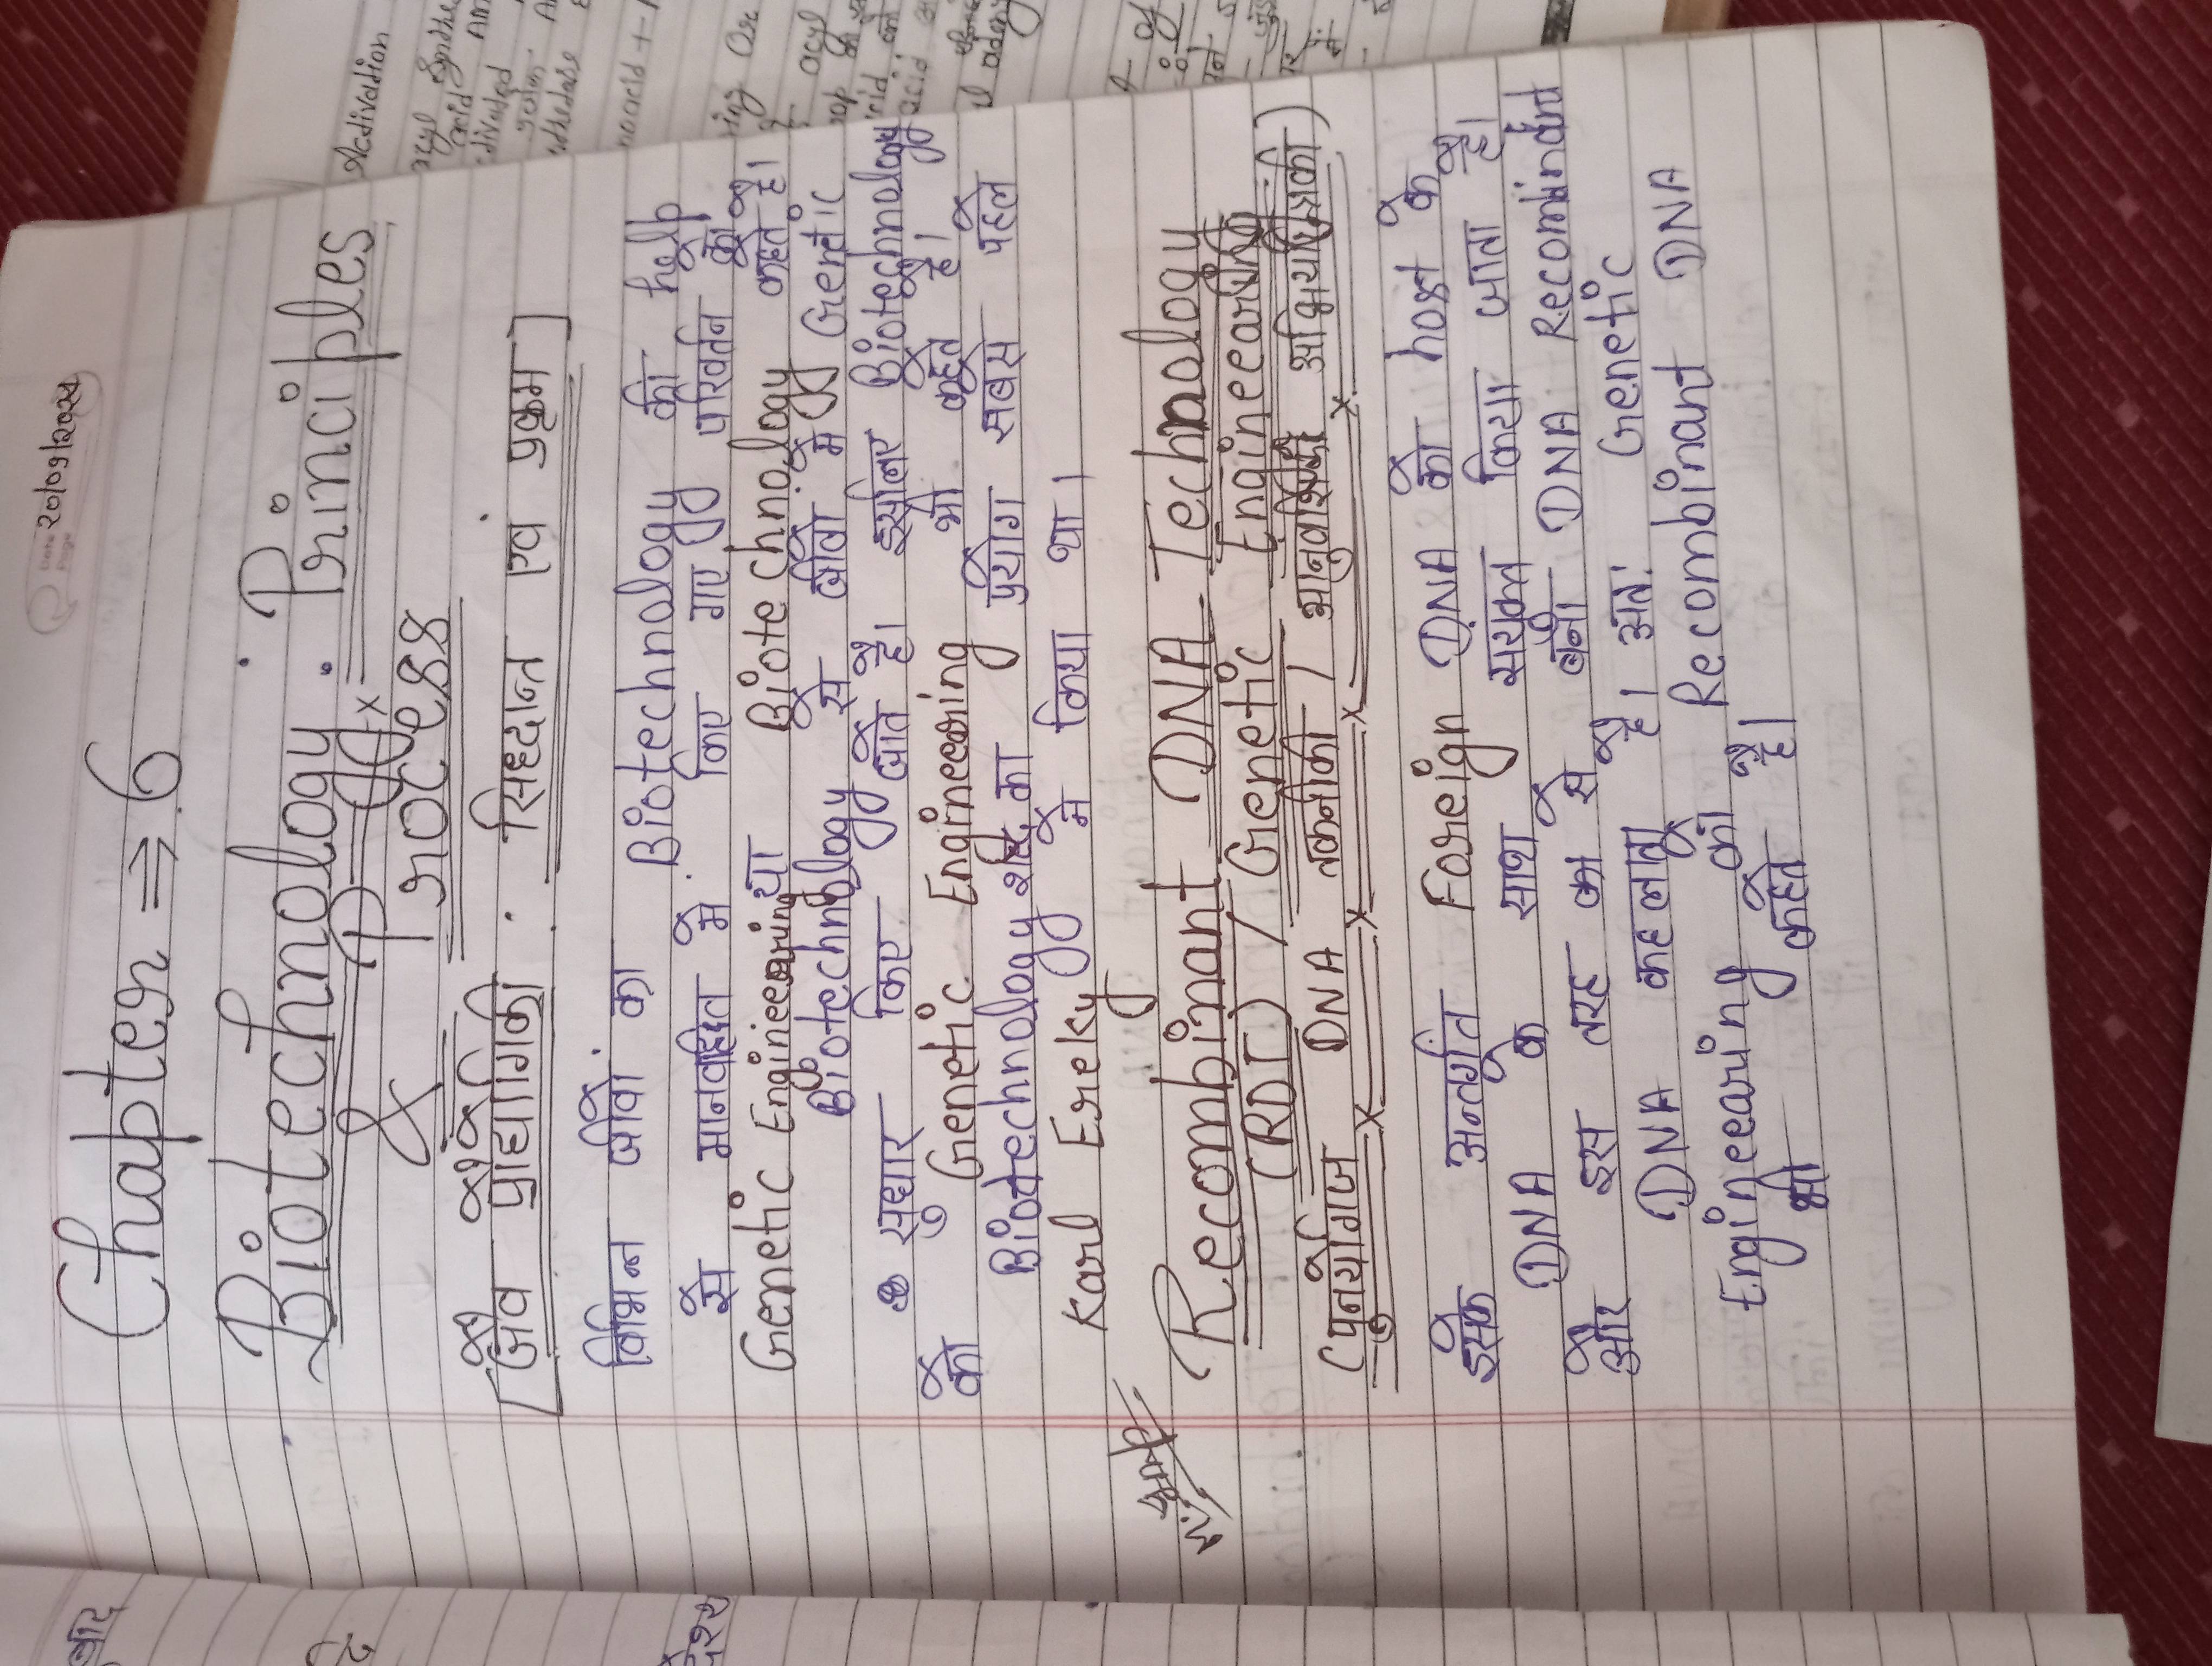 Date 20/09/2025
Page
Chapter ⇒ 6
Biotechnology : Principles
& Process
[जैव प्रौद्योगिकी : सिद्दान्त एव प्रक्रम]
विभिन्न जीवो का Biotechnology की help
से मानवहित मे किए गए परिवर्तन को
Genetic Engineering या Biotechnology कहते है।
Biotechnology से जीवो मे Genetic
सुधार किए जाते है। इसलिए Biotechnology
को Genetic Engineering भी कहते है।
Biotechnology शब्द का प्रयोग सबसे पहले
Karl Ereky ने किया था।
Recombinant DNA Technology
(RDT) / Genetic Engineearing
(पुनर्योगज DNA तकनीकी / आनुवांशिकी अभियांत्रिकी)
इसके अन्तर्गत Foreign DNA को host के
DNA के साथ सयुक्त किया जाता है।
और इस तरह का से बना DNA Recombinant
DNA कहलाता है। अतः Genetic
Engineearing को Recombinant DNA
भी कहते है।
Activation